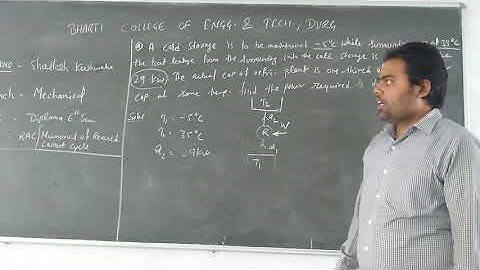 BHARTI COLLEGE OF ENGG. & TECH., DURG
A cold storage is to be maintained -5°c while surrounding at 35°c
the heat leakage from the surrounding into the cold storage is
29 kW. The actual cop of refri. plant is one third of
cop at same temp. find the power required
- Shailesh Kushwaha
- Mechanical
- Diploma 6th Sem
- RAC/Numerical of Reversed
Carnot cycle
Soln T1 = -5°c
T2 = 35°c
Q2 = 29 kW
T2
Q2
R
W
Q1
T1